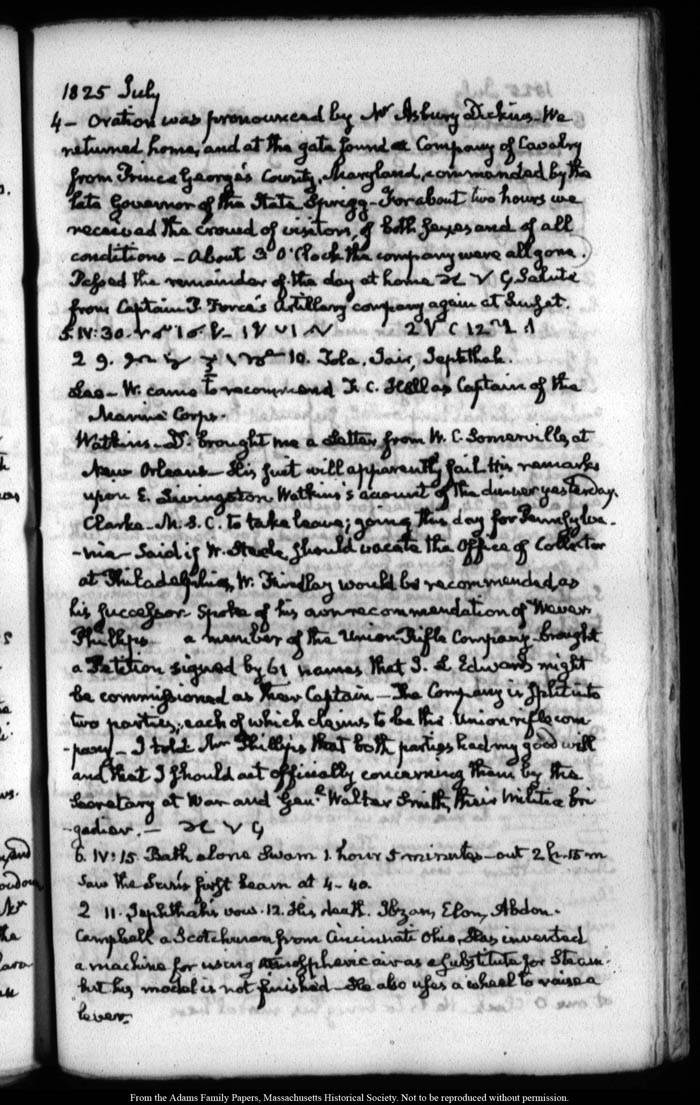 1825 July
4 - Oration was pronounced by Mr Asbury Dickins - We
returned home, and at the gate found a Company of Cavalry
from Prince George's County, Maryland, commanded by the
late Governor of the State Sprigg - For about two hours we
received the crowd of visitors, of both sexes and of all
conditions - About 3 O'Clock the company were all gone.
Passed the remainder of the day at home Salute
from Captain P. Force's Artillery company again at Sunset.
5. IV: 30.
2 9. 10. Tola, Jair, Jephthah.
Lee - W. came to recommend T. C. Hall as Captain of the
Marine Corps.
Watkins - T. brought me a Letter from W. C. Somerville, at
New Orleans - His suit will apparently fail. His remarks
upon E. Livingston. Watkins's account of the dinner yesterday.
Clarke - M. S. C. to take leave; going this day for Pennsylva-
-nia - Said if W. Steele should vacate the Office of Collector
at Philadelphia, W. Findlay would be recommended as
his successor. Spoke of his own recommendation of Wever
Phillips - a member of the Union Rifle Company - brought
a Petition signed by 61 names that J. L. Edwards might
be commissioned as their Captain - The Company is split into
two parties; each of which claims to be the Union rifle com
-pany - I told Mr Phillips that both parties had my good will
and that I should act officially concerning them by the
Secretary at War and Genl. Walter Smith, their Militia bri
-gadier. -
6. IV: 15. Bath alone Swam 1. hour 5 minutes - out 2 h. 15 m
Saw the Sun's first beam at 4-40.
2 11. Jephthah's vow. 12. His death. Ibzan, Elon, Abdon.
Campbell a Scotchman from Cincinnati Ohio, Has invented
a machine for using atmospheric air as a substitute for Steam.
but his model is not finished - He also uses a wheel to raise a
lever.
From the Adams Family Papers, Massachusetts Historical Society. Not to be reproduced without permission.